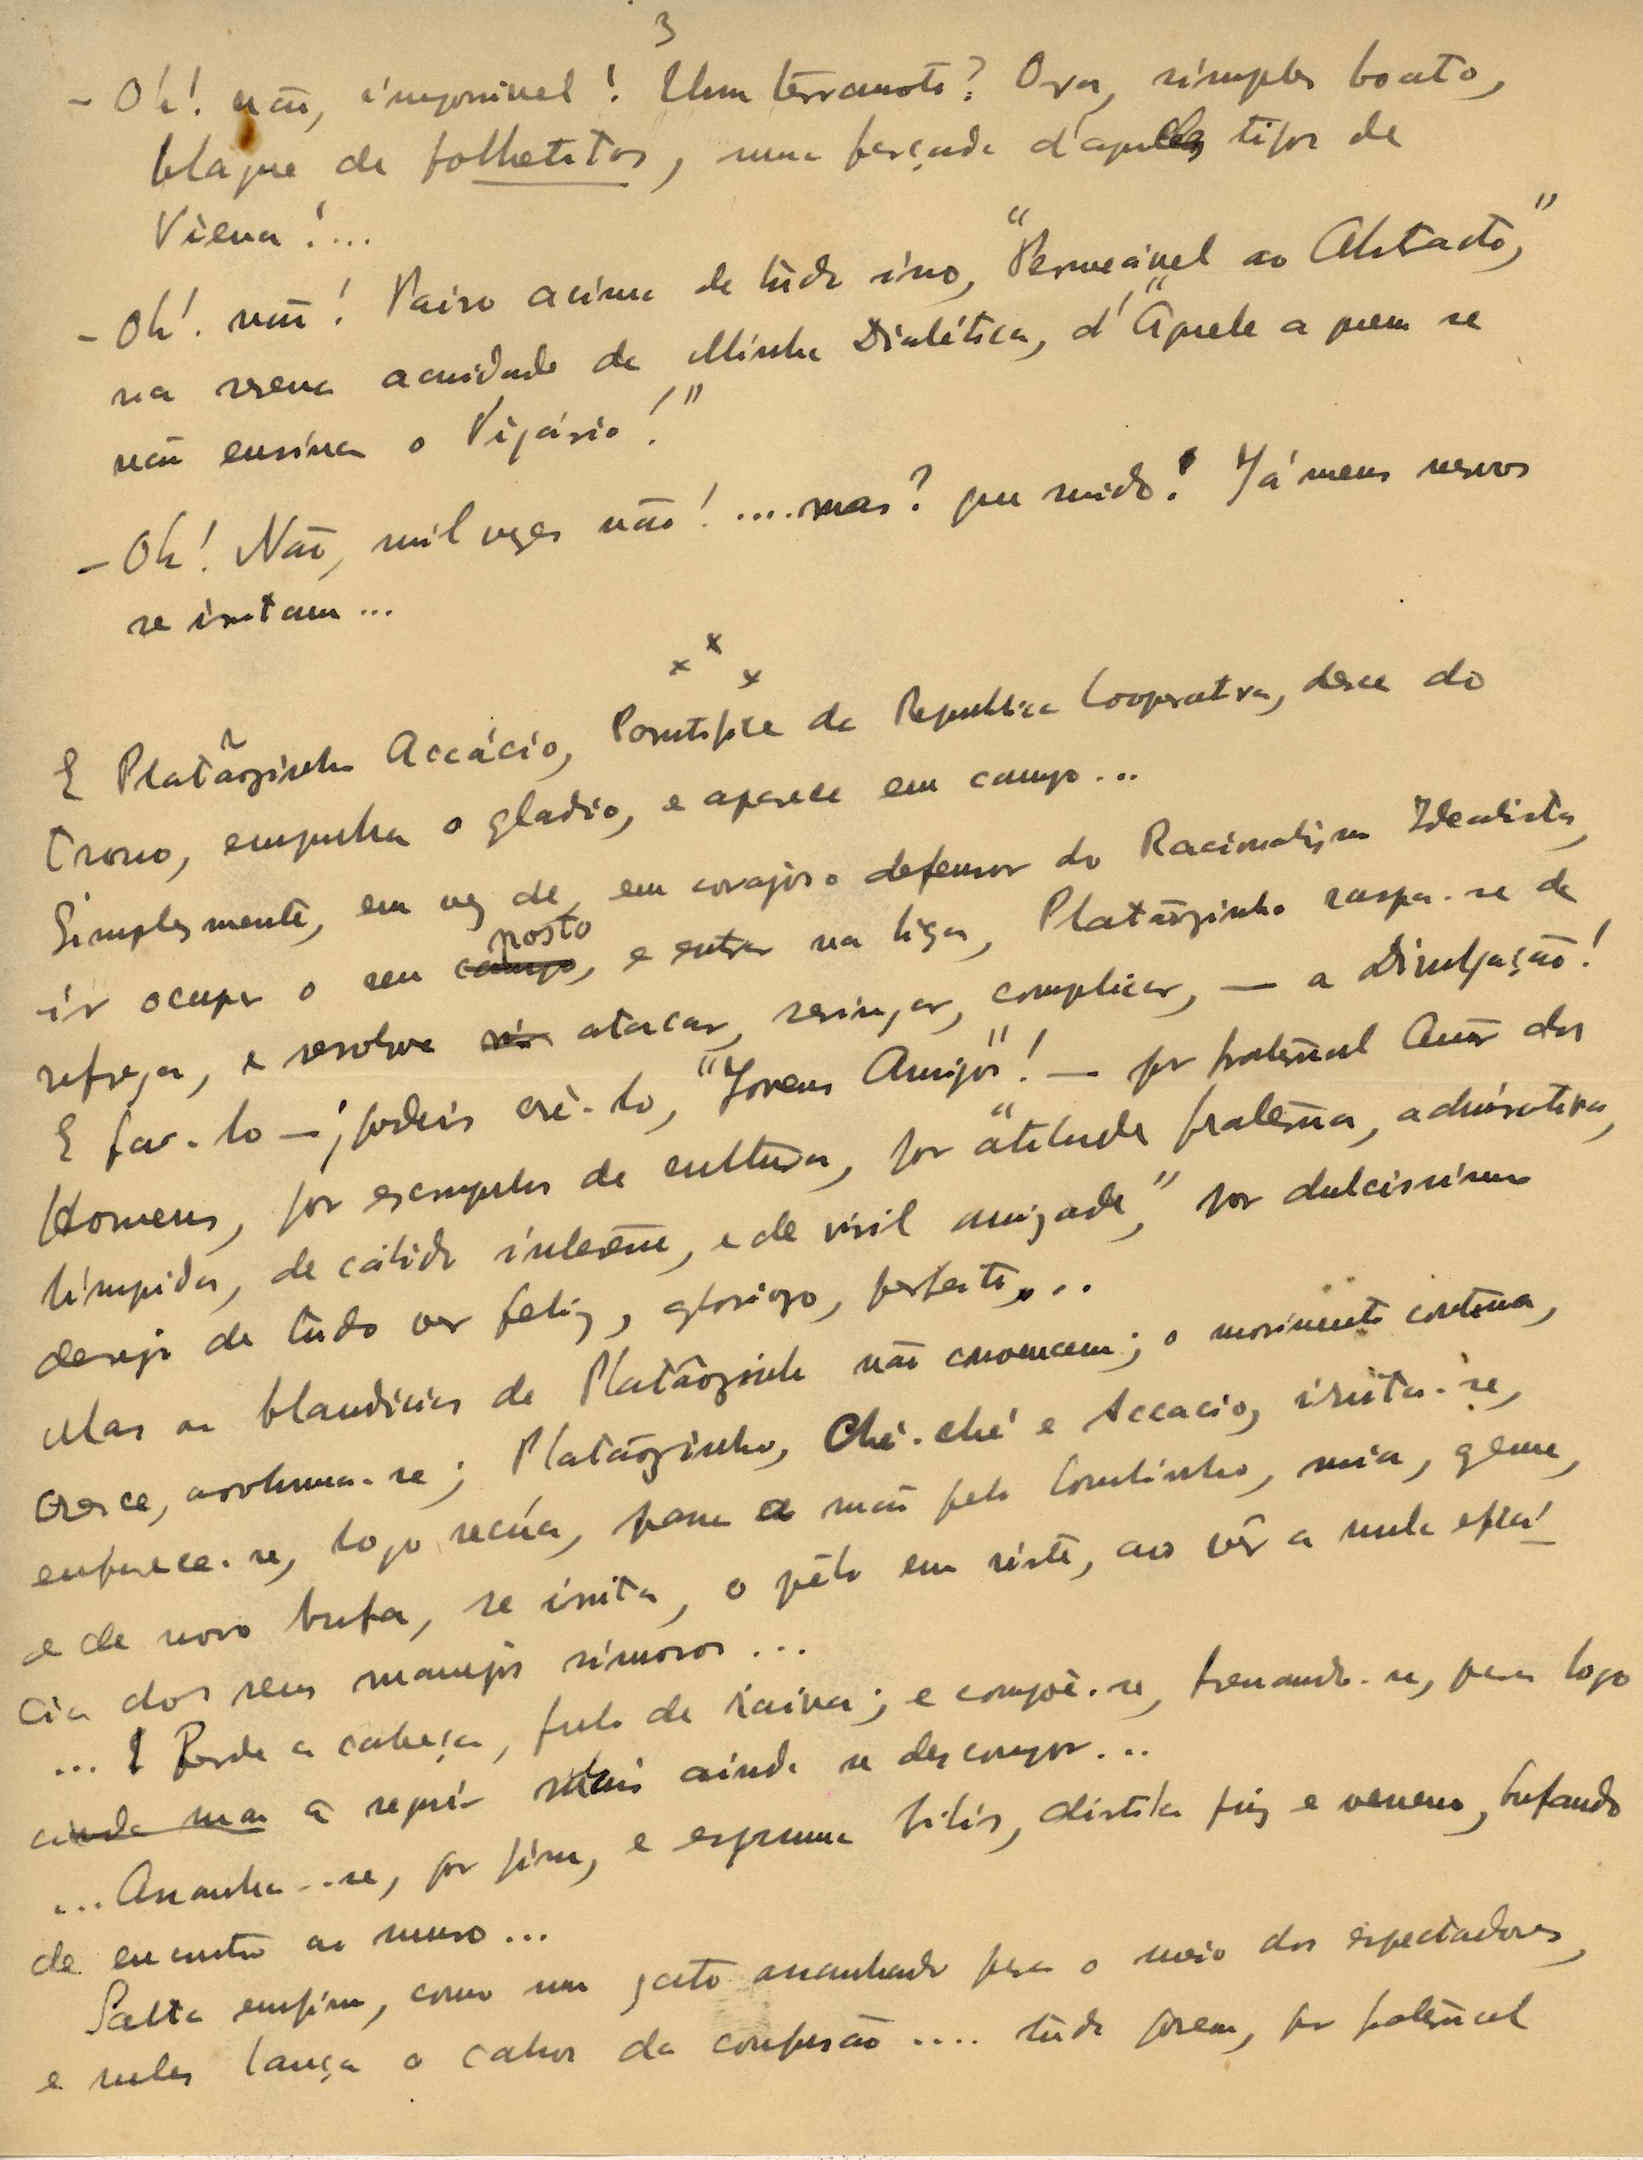 3
- Oh! não, impossivel! Um terramoto? Ora, simples boato,
blague de folhetitos, uma forçada d'aqueles tipos de
Viena!...
- Oh! não! Pairo acima de tudo isso, "Permeável ao Abstacto,"
na serena acuidade da Minha Dialética, d'"Aquele a quem se
não ensina o Vigário!"
- Oh! Não, mil vezes não! ....mas? que ruido! Já meus nervos
se irritam...
x x x
E Platãozinho Accácio, Pontifice da Republica Cooperativa, desce do
trono, empunha o gladio, e aparece em campo...
Simplesmente, em vez de, em corajoso defensor do Racionalismo Idealista,
ir ocupar o seu campo posto, e entrar na liça, Platãozinho raspa-se de
refrega, e resolve atacar, seringar, complicar, — a Divulgação!
E faz-lo —, podeis crê-lo, "Jovens Amigos"! — por fraternal Amor dos
Homens, por escrupulos de cultura, por "atitude fraterna, admirativa,
límpida, de cálido interesse, e de viril amizade," por dulcissimo
desejo de tudo ver feliz, glorioso, perfeito...
Mas as blandicias de Platãozinho não convencem; o movimento continua,
cresce, avoluma-se; Platãozinho, Ché-ché e Accacio, irrita-se,
enfurece-se, logo recúa, passa a mão pelo lombinho, mia, geme,
e de novo bufa, se irrita, o pêlo em riste, ao vêr a nula eficá-
cia dos seus manejos rimosos...
... Perde a cabeça, fulo de raiva; e compõe-se, frenando-se, para logo
ainda mas a seguir mais ainda se descompor...
...Assanha-se, por fim, e espuma bílis, distila fus e veneno, bufando
de encontro ao muro...
Salta emfim, como um gato assanhado para o meio dos espectadores,
e neles lança o calor da confusão.... tudo porem, por fraternal